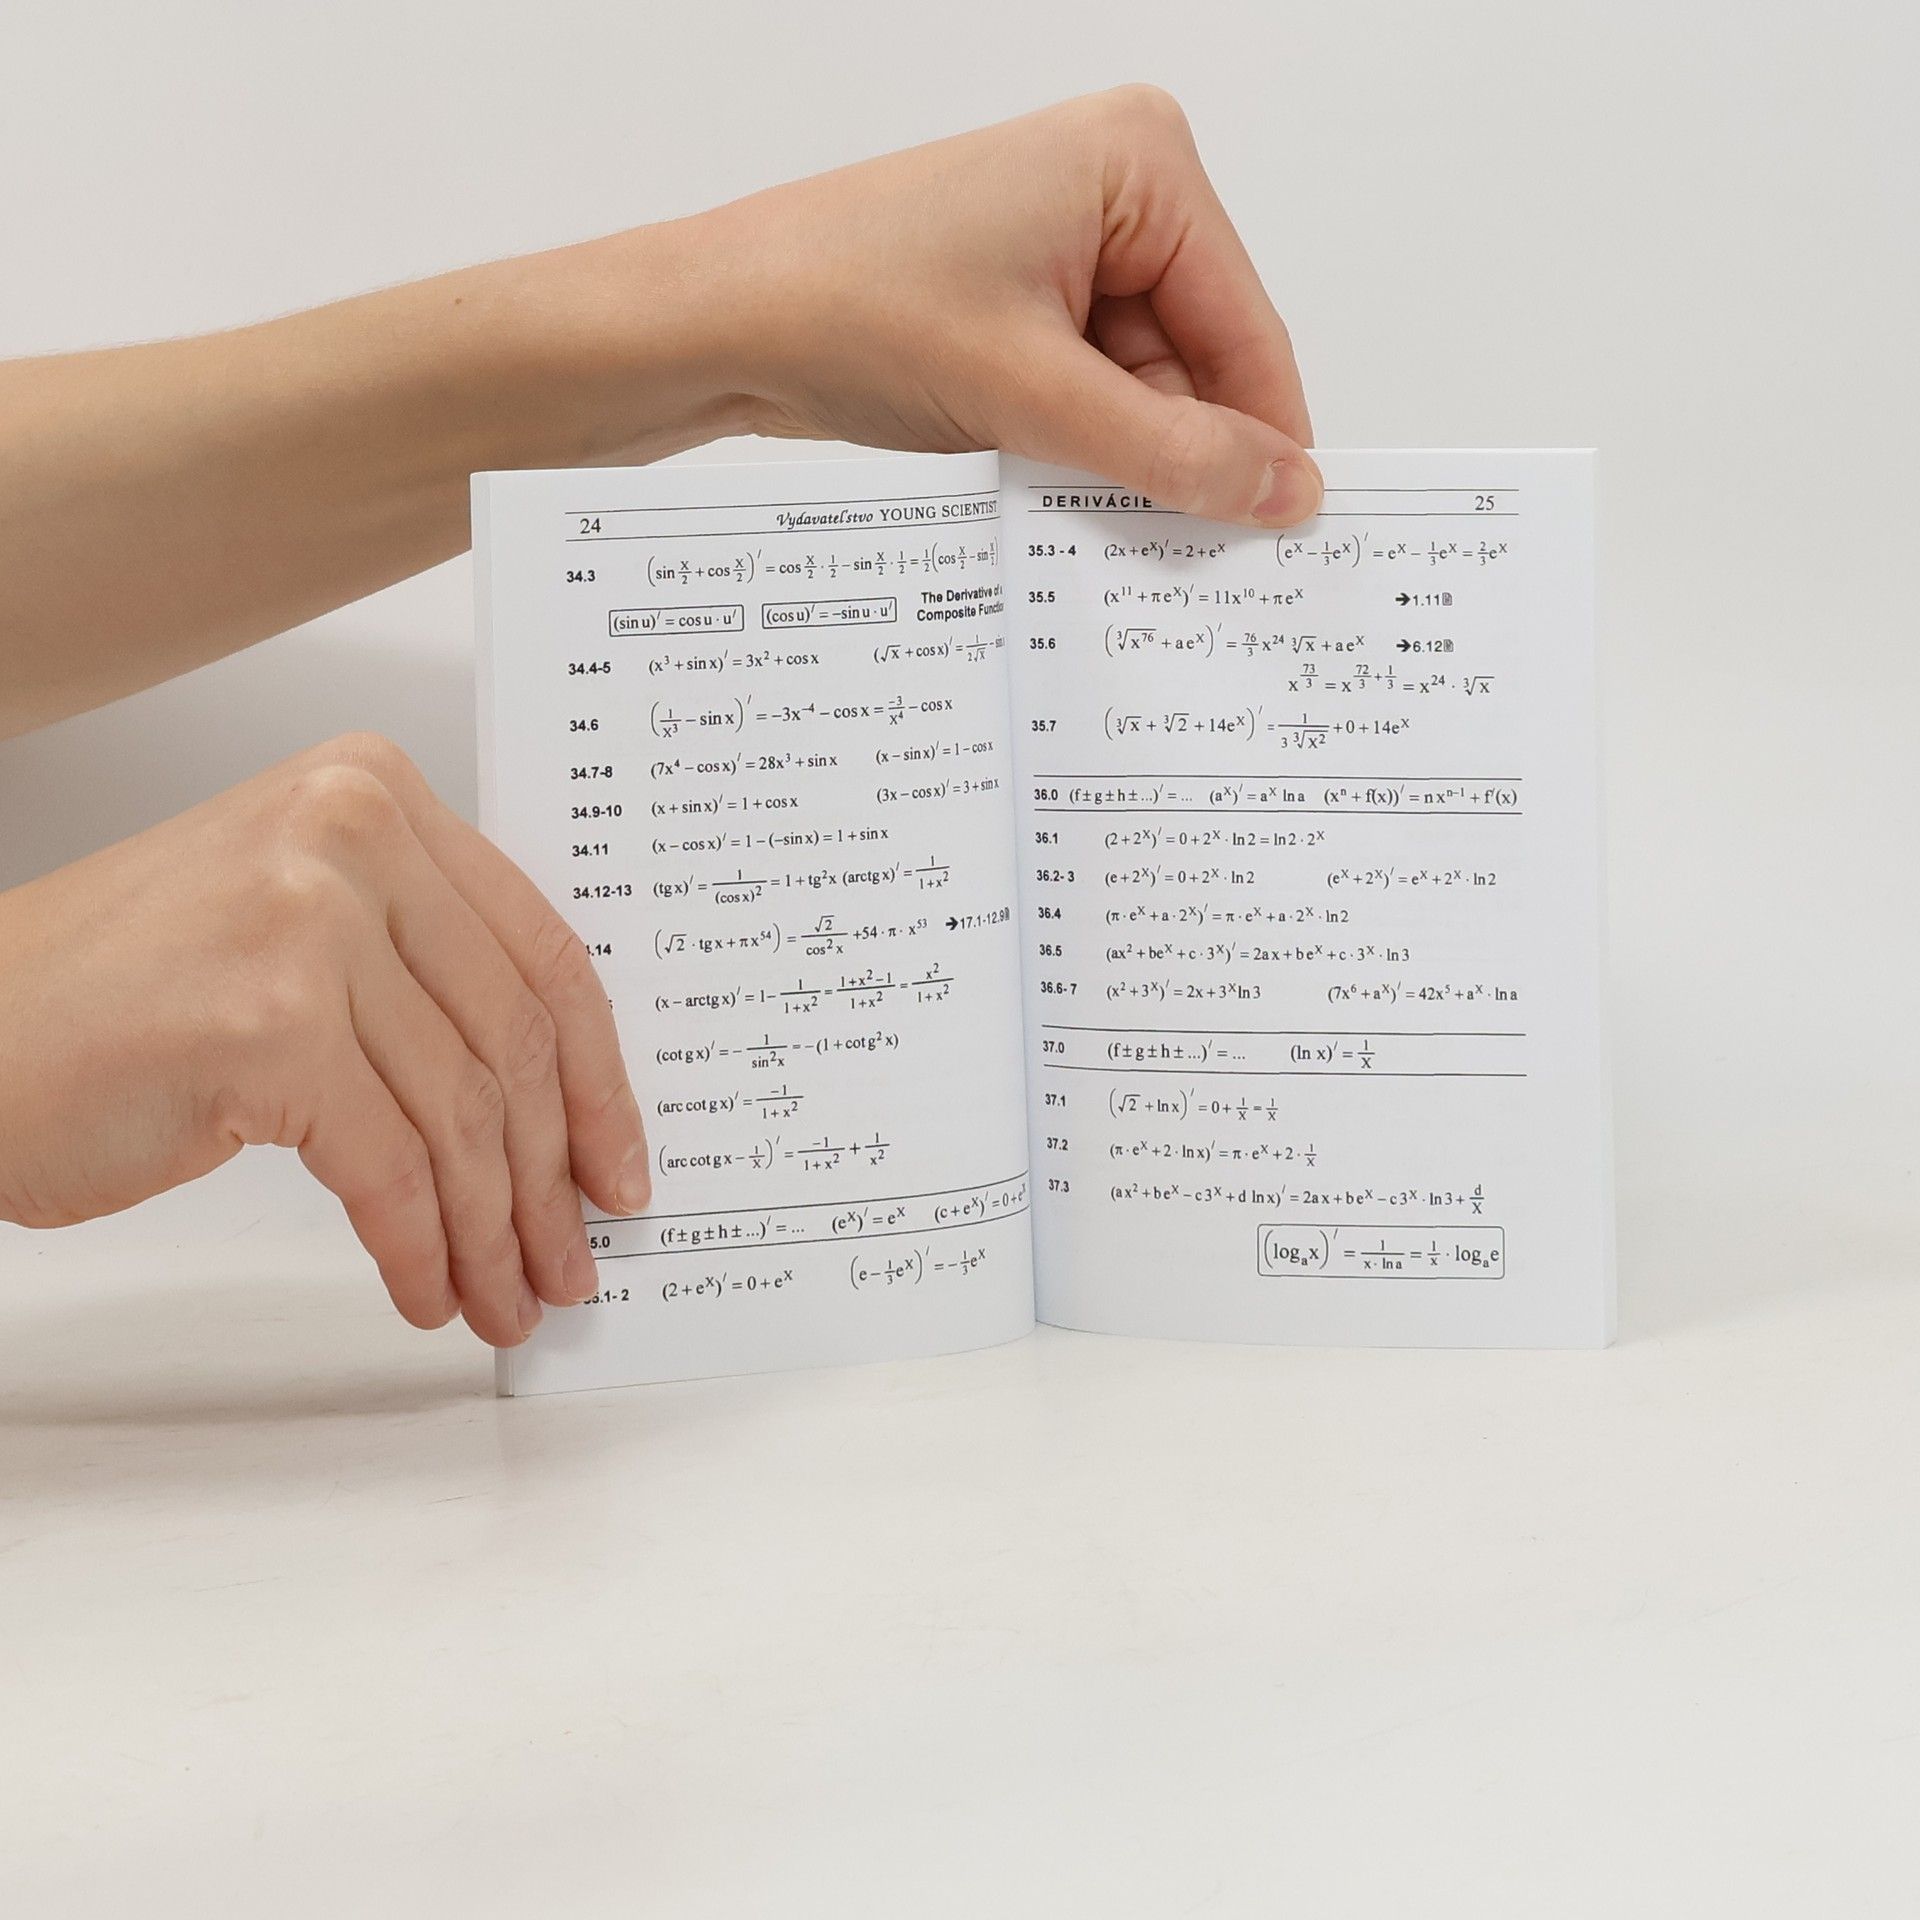 24 Vydavateľstvo YOUNG SCIENTIST
34.3 (sin x/2 + cos x/2)′ = cos x/2 · 1/2 − sin x/2 · 1/2 = 1/2(cos x/2 − sin x/2)
(sin u)′ = cos u · u′ (cos u)′ = −sin u · u′ The Derivative of
Composite
34.4-5 (x³ + sin x)′ = 3x² + cos x (√x + cos x)′ = 1/(2√x) −
34.6 (1/x³ − sin x)′ = −3x⁻⁴ − cos x = −3/x⁴ − cos x
34.7-8 (7x⁴ − cos x)′ = 28x³ + sin x (x − sin x)′ = 1 − cos x
34.9-10 (x + sin x)′ = 1 + cos x (3x − cos x)′ = 3 + sin x
34.11 (x − cos x)′ = 1 − (−sin x) = 1 + sin x
34.12-13 (tg x)′ = 1/(cos x)² = 1 + tg²x (arctg x)′ = 1/(1+x²)
.14 (√2 · tg x + πx⁵⁴) = √2/cos²x + 54 · π · x⁵³ ➔17.1-12.9
(x − arctg x)′ = 1 − 1/(1+x²) = (1+x²−1)/(1+x²) = x²/(1+x²)
(cotg x)′ = − 1/sin²x = −(1 + cotg²x)
(arc cotg x)′ = −1/(1+x²)
(arc cotg x − 1/x)′ = −1/(1+x²) + 1/x²
5.0 (f ± g ± h ± ...)′ = ... (eˣ)′ = eˣ (c + eˣ)′ = 0 + eˣ
5.1-2 (2 + eˣ)′ = 0 + eˣ (e − 1/3 eˣ)′ = − 1/3 eˣ
DERIVÁCIE 25
35.3 - 4 (2x + eˣ)′ = 2 + eˣ (eˣ − 1/3 eˣ)′ = eˣ − 1/3 eˣ = 2/3 eˣ
35.5 (x¹¹ + π eˣ)′ = 11x¹⁰ + π eˣ ➔1.11
35.6 (∛x⁷⁶ + a eˣ)′ = 76/3 x²⁴ ∛x + a eˣ ➔6.12
x^(73/3) = x^(72/3 + 1/3) = x²⁴ · ∛x
35.7 (∛x + ∛2 + 14eˣ)′ = 1/(3 ∛x²) + 0 + 14eˣ
36.0 (f ± g ± h ± ...)′ = ... (aˣ)′ = aˣ ln a (xⁿ + f(x))′ = n xⁿ⁻¹ + f′(x)
36.1 (2 + 2ˣ)′ = 0 + 2ˣ · ln 2 = ln 2 · 2ˣ
36.2- 3 (e + 2ˣ)′ = 0 + 2ˣ · ln 2 (eˣ + 2ˣ)′ = eˣ + 2ˣ · ln 2
36.4 (π · eˣ + a · 2ˣ)′ = π · eˣ + a · 2ˣ · ln 2
36.5 (ax² + beˣ + c · 3ˣ)′ = 2ax + beˣ + c · 3ˣ · ln 3
36.6- 7 (x² + 3ˣ)′ = 2x + 3ˣ ln 3 (7x⁶ + aˣ)′ = 42x⁵ + aˣ · ln a
37.0 (f ± g ± h ± ...)′ = ... (ln x)′ = 1/x
37.1 (√2 + ln x)′ = 0 + 1/x = 1/x
37.2 (π · eˣ + 2 · ln x)′ = π · eˣ + 2 · 1/x
37.3 (ax² + beˣ − c 3ˣ + d ln x)′ = 2ax + beˣ − c 3ˣ · ln 3 + d/x
(logₐx)′ = 1/(x · ln a) = 1/x · logₐe